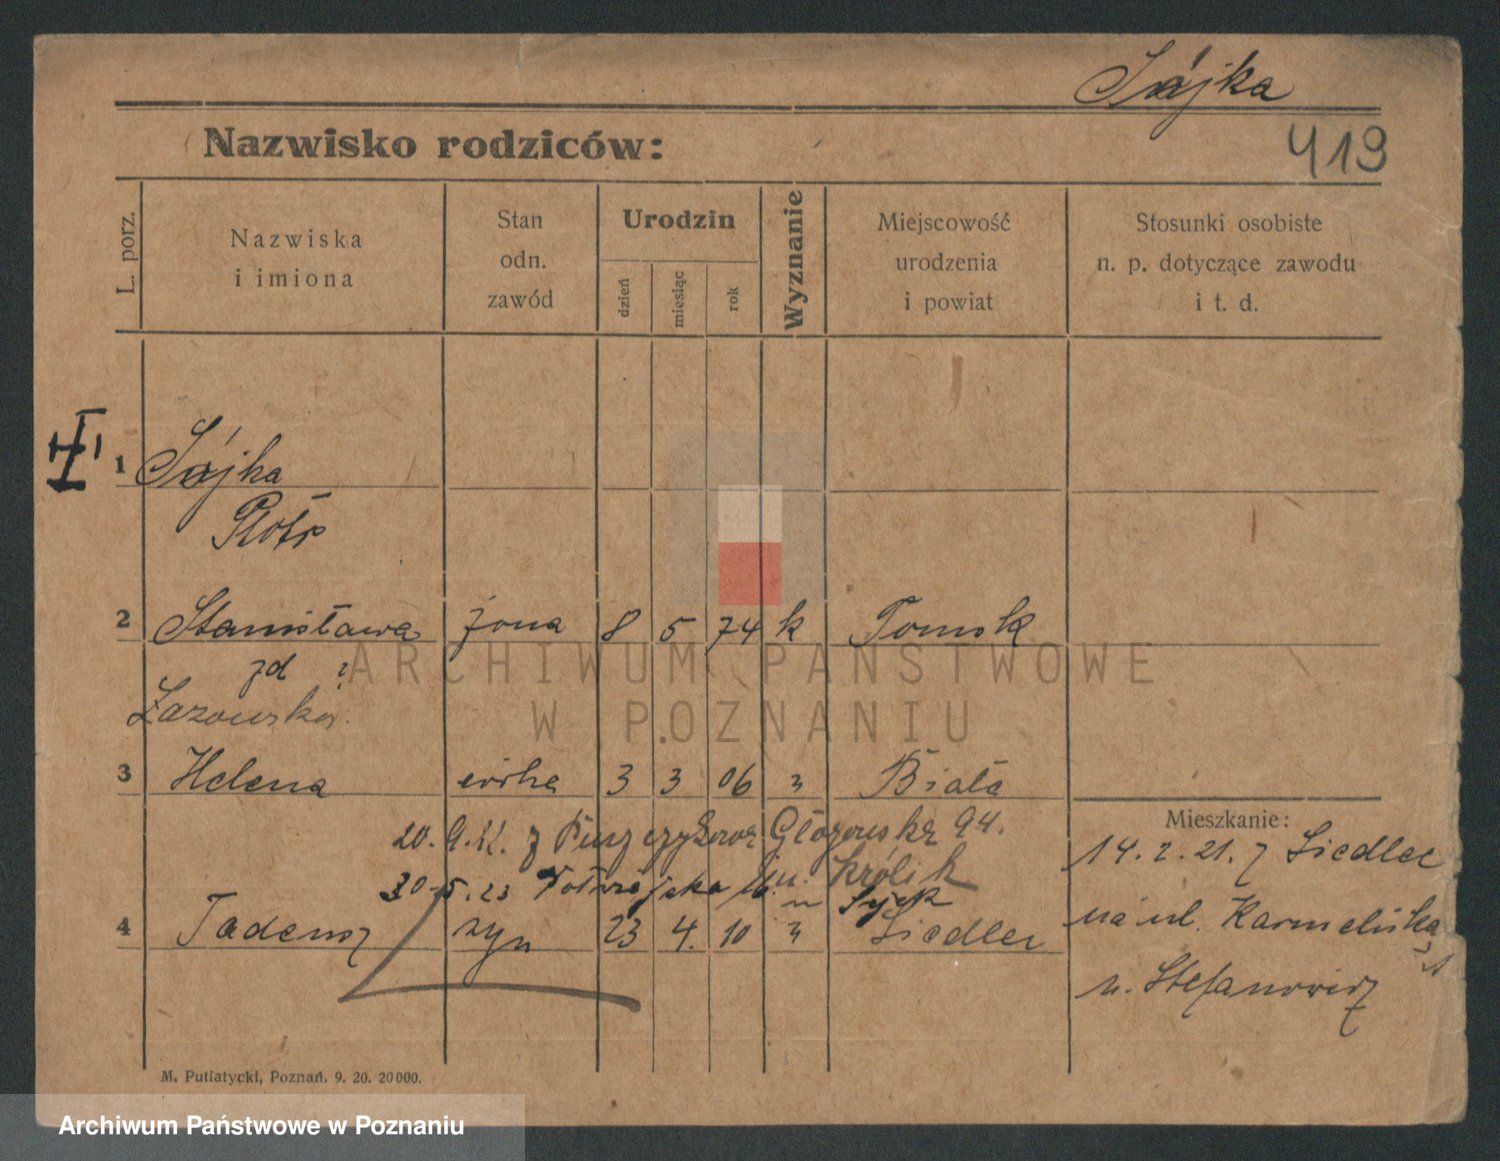 Sójka
419
Nazwisko rodziców:
L. porz.
Nazwiska
i imiona
Stan
odn.
zawód
Urodzin
dzień
miesiąc
rok
Wyznanie
Miejscowość
urodzenia
i powiat
Stosunki osobiste
n. p. dotyczące zawodu
i t. d.
1 Sójka
Piotr
2 Stanisława żona 8 5 74 k Tomsk
zd ?
Łazowska
3 Helena córka 3 3 06 " Biała
20.9.22. z Puszczykowa Głogowska 94.
u. Królik
30.5.23
4 Tadeusz syn 23 4. 10 " Siedlec
Mieszkanie:
14.2.21. z Siedlec
na ul. Karmelicką 1
u. Stefanowicz
M. Putiatycki, Poznań. 9. 20. 20000.
ARCHIWUM PAŃSTWOWE
W POZNANIU
Archiwum Państwowe w Poznaniu